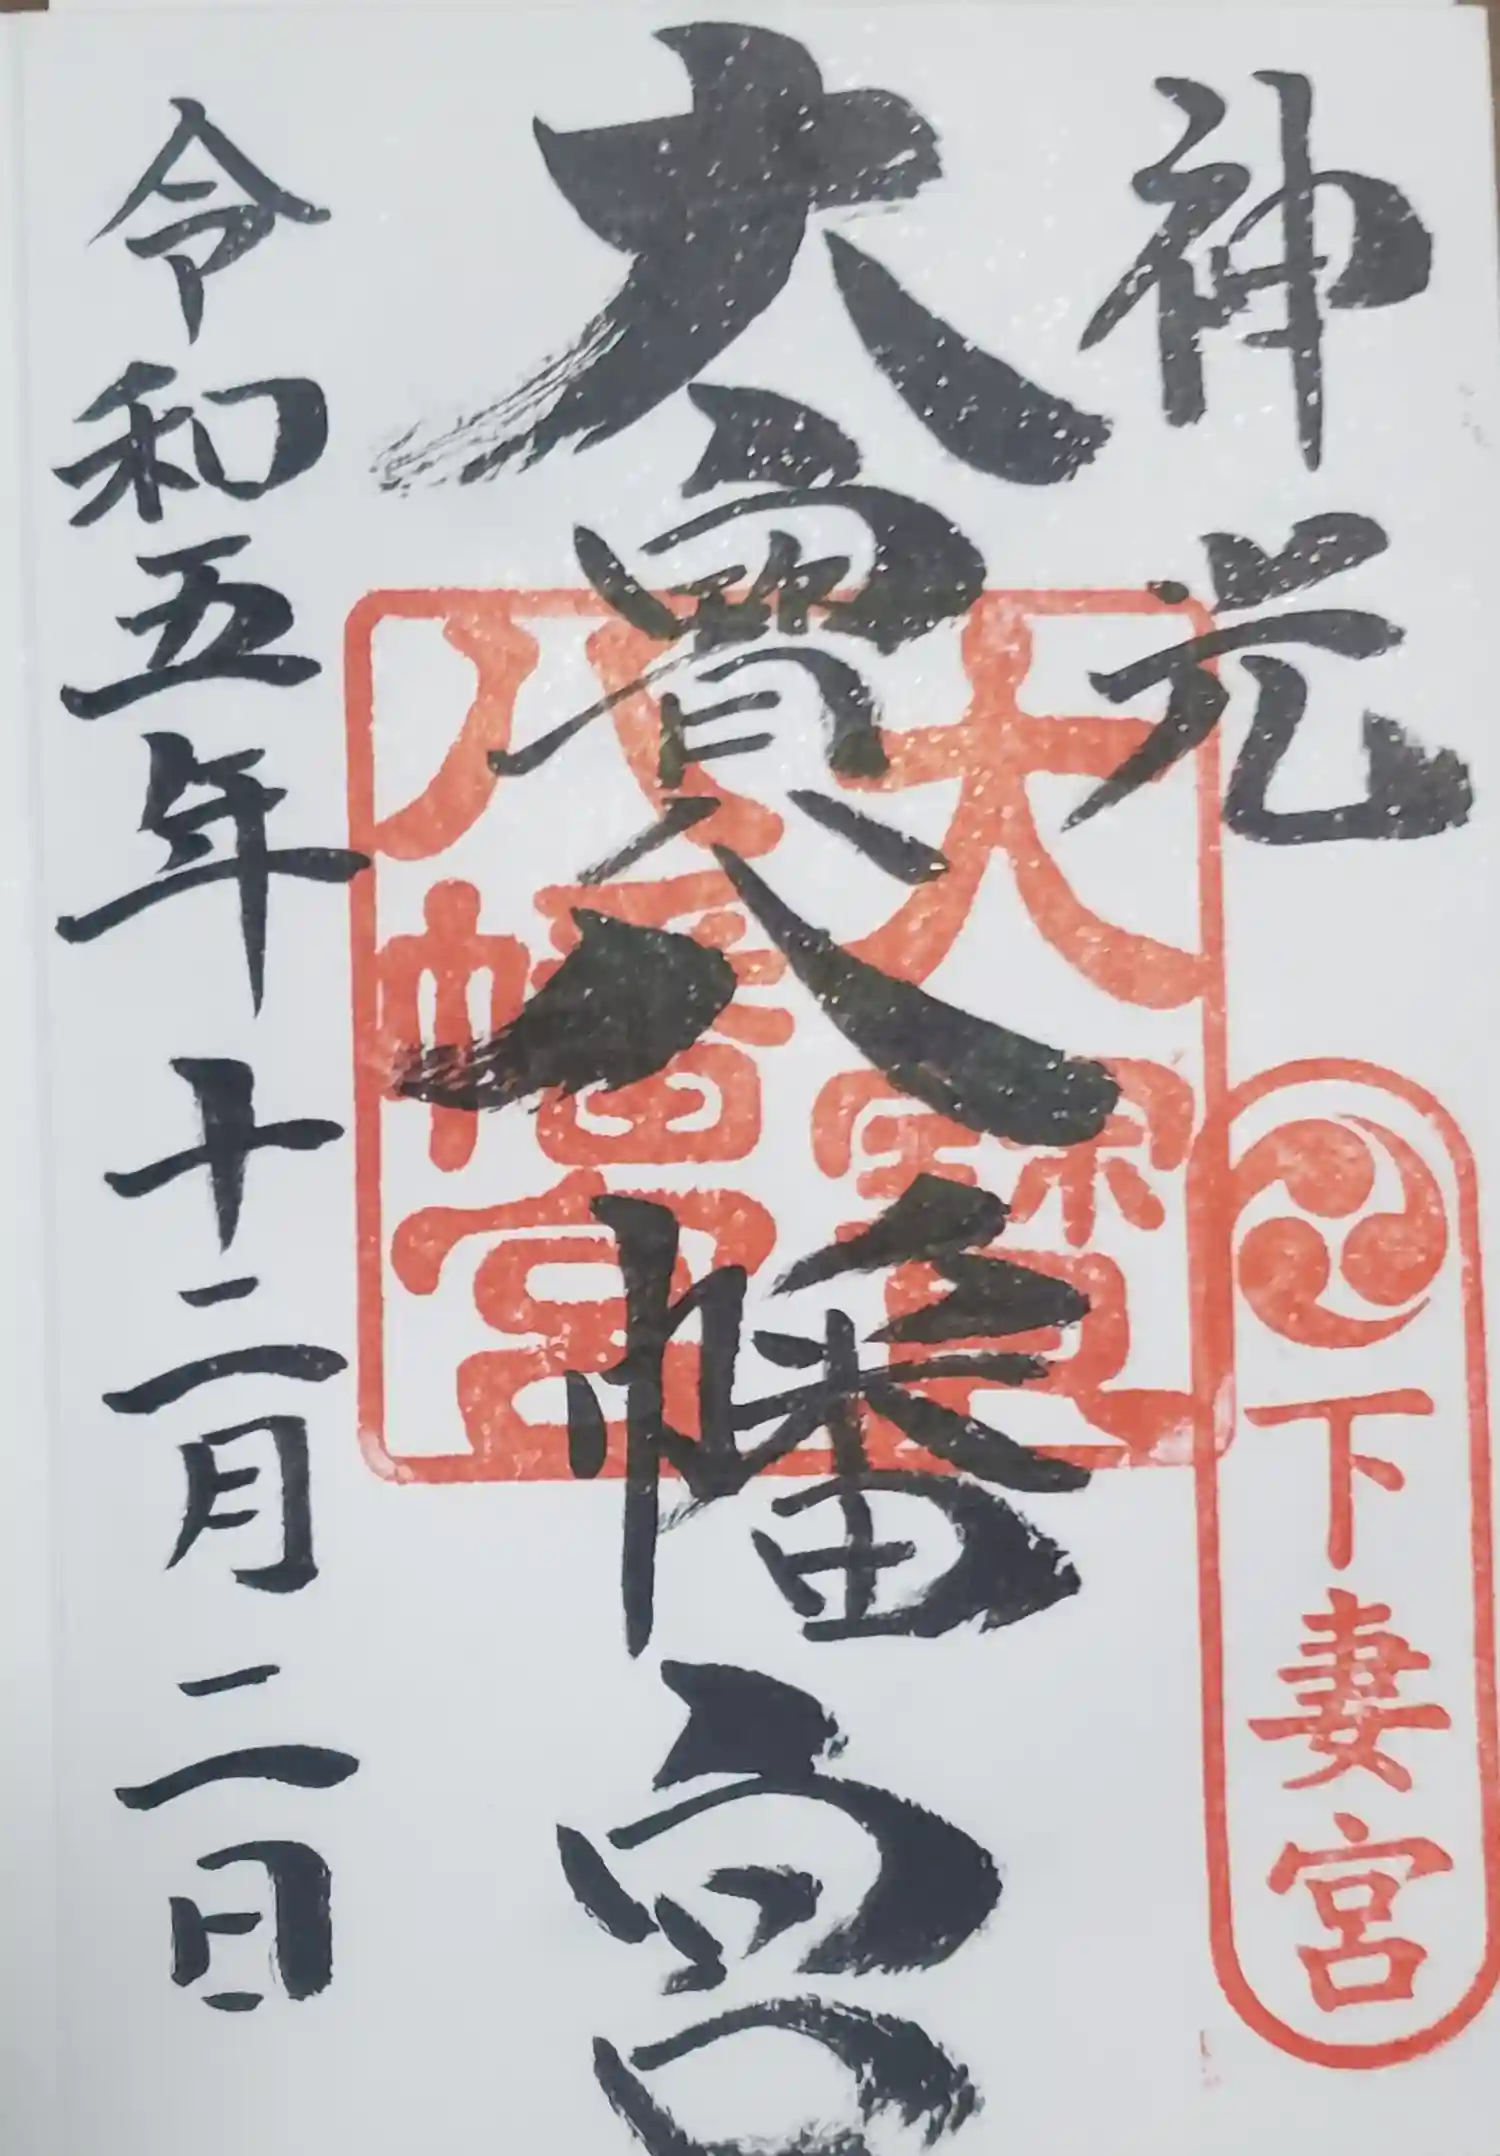 神元
下妻宮
大寶八幡宮
大寶
八幡宮
令和五年十二月二日